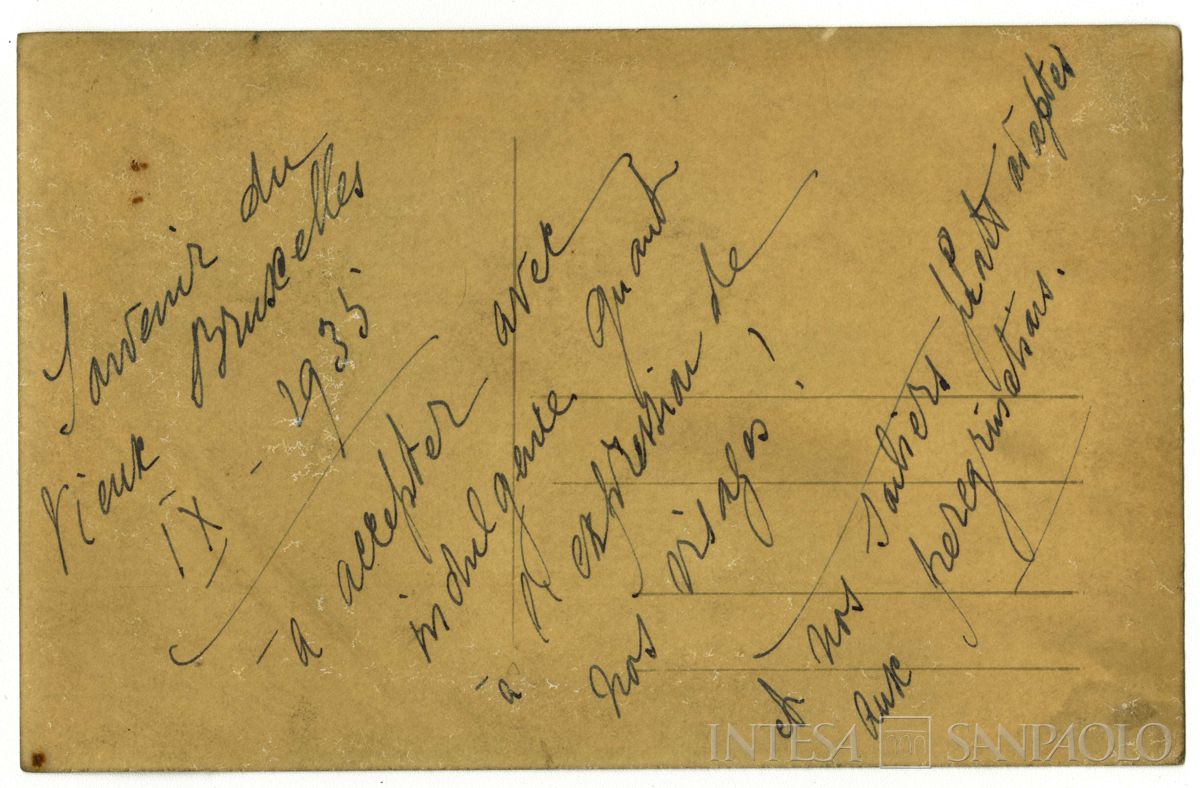 Souvenir du
Vieux Bruxelles
IX - 1935
à accepter avec
indulgence quant
à l'expression de
nos visages !
et nos souliers plats adaptes
aux peregrinations.
INTESA SANPAOLO